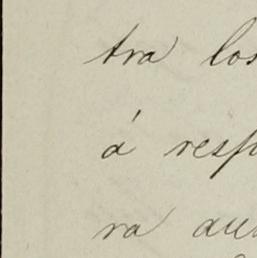 tra los
á resp
ra au